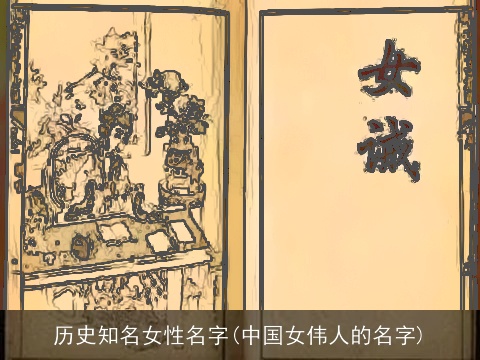 女
诫
历史知名女性名字(中国女伟人的名字)